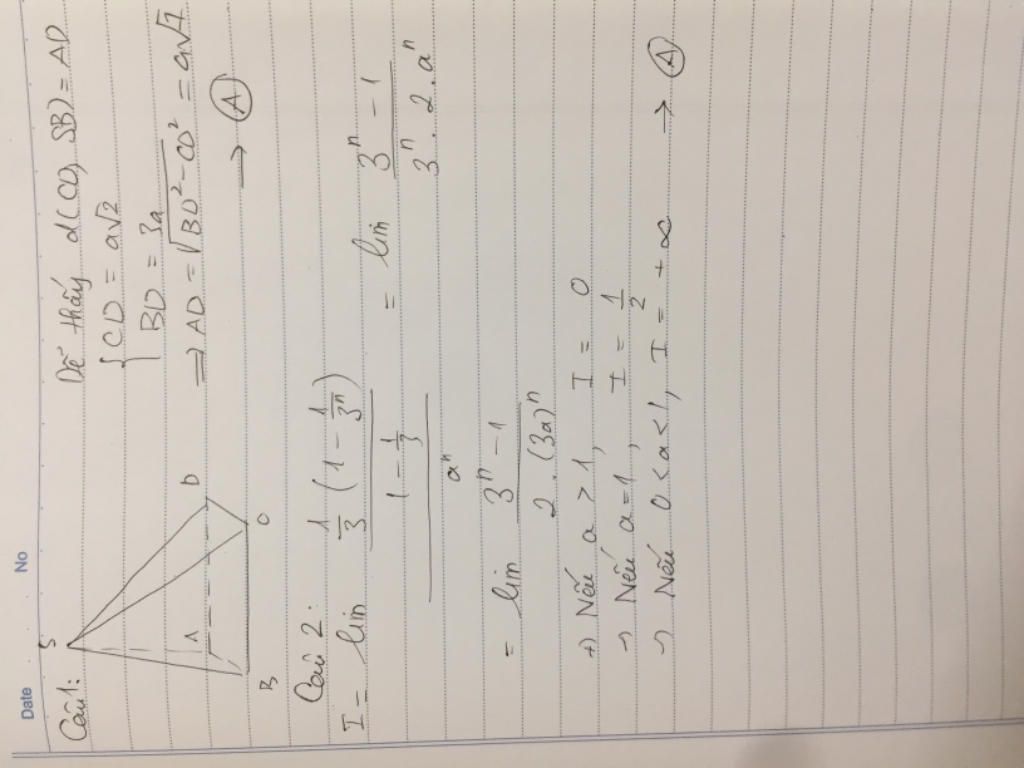 Date No
Câu 1:
S
A
D
B
C
Dễ thấy d(CD, SB) = AD
{ CD = a√2
BD = 3a
⇒ AD = √(BD² - CD²) = a√7
→ Ⓐ
Câu 2:
I = lim (1/3 (1 - 1/3ⁿ) / (1 - 1/3)) / aⁿ = lim (3ⁿ - 1) / (3ⁿ . 2 . aⁿ)
= lim (3ⁿ - 1) / (2 . (3a)ⁿ)
+) Nếu a > 1, I = 0
→ Nếu a = 1, I = 1/2
→ Nếu 0 < a < 1, I = +∞ → Ⓐ